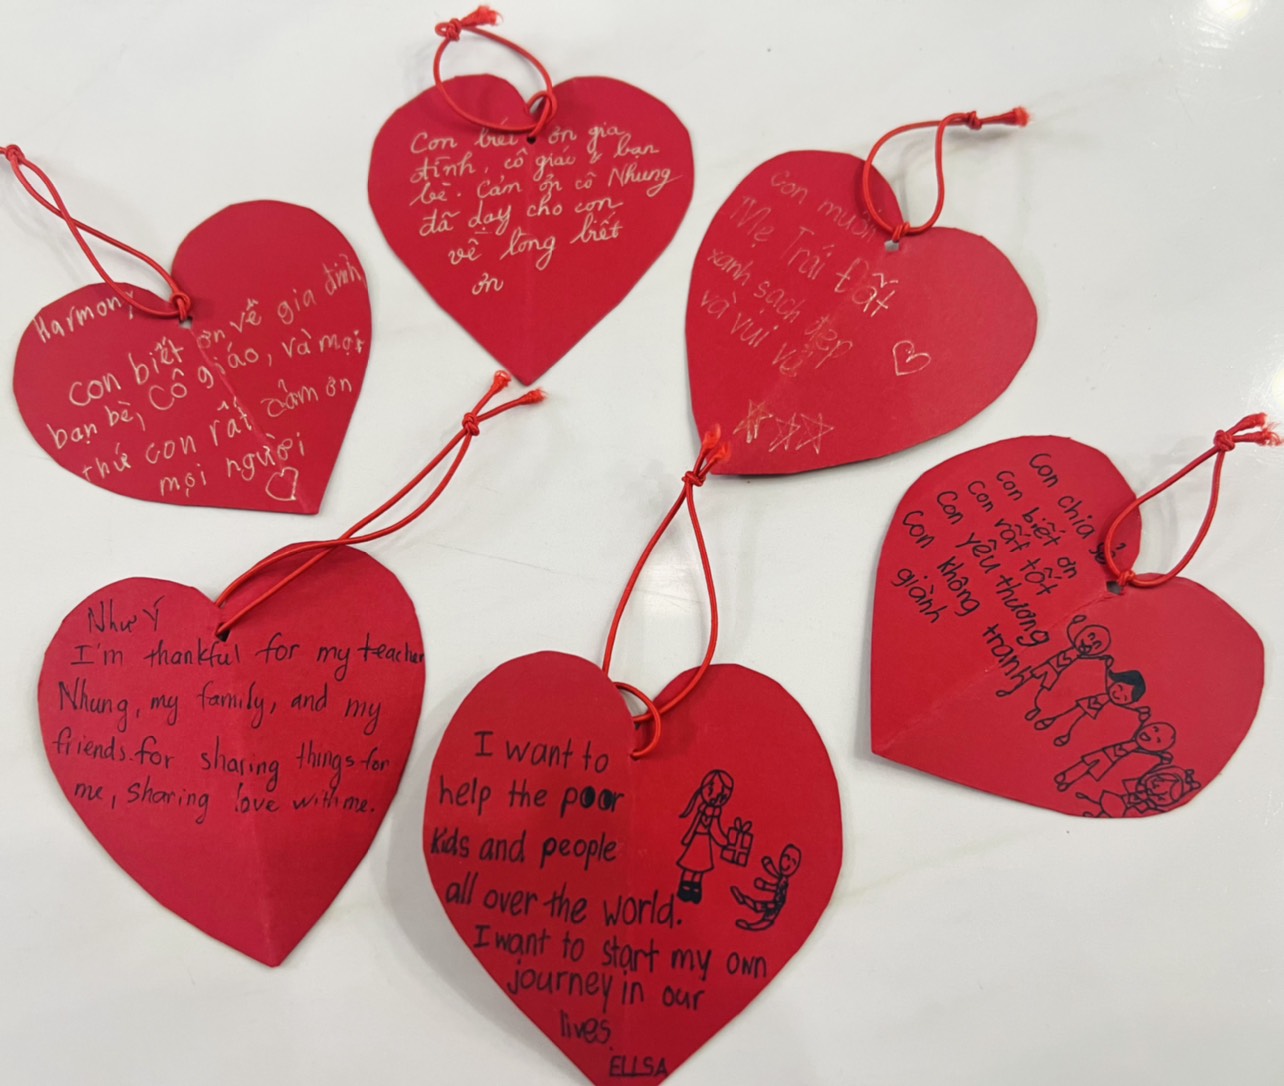 Con biết ơn gia
đình, cô giáo & bạn
bè. Cảm ơn cô Nhung
đã dạy cho con
về lòng biết
ơn
Harmony
con biết ơn về gia đình,
bạn bè, Cô giáo, và mọi
thứ con rất cảm ơn
mọi người
con muốn
Mẹ Trái Đất
xanh sạch đẹp
và vui vẻ
Con chia sẻ
con biết ơn
con rất tốt
con yêu thương
con không tranh
giành
Như Ý
I'm thankful for my teacher
Nhung, my family, and my
friends for sharing things for
me, sharing love with me.
I want to
help the poor
kids and people
all over the world.
I want to start my own
journey in our
lives.
ELLSA